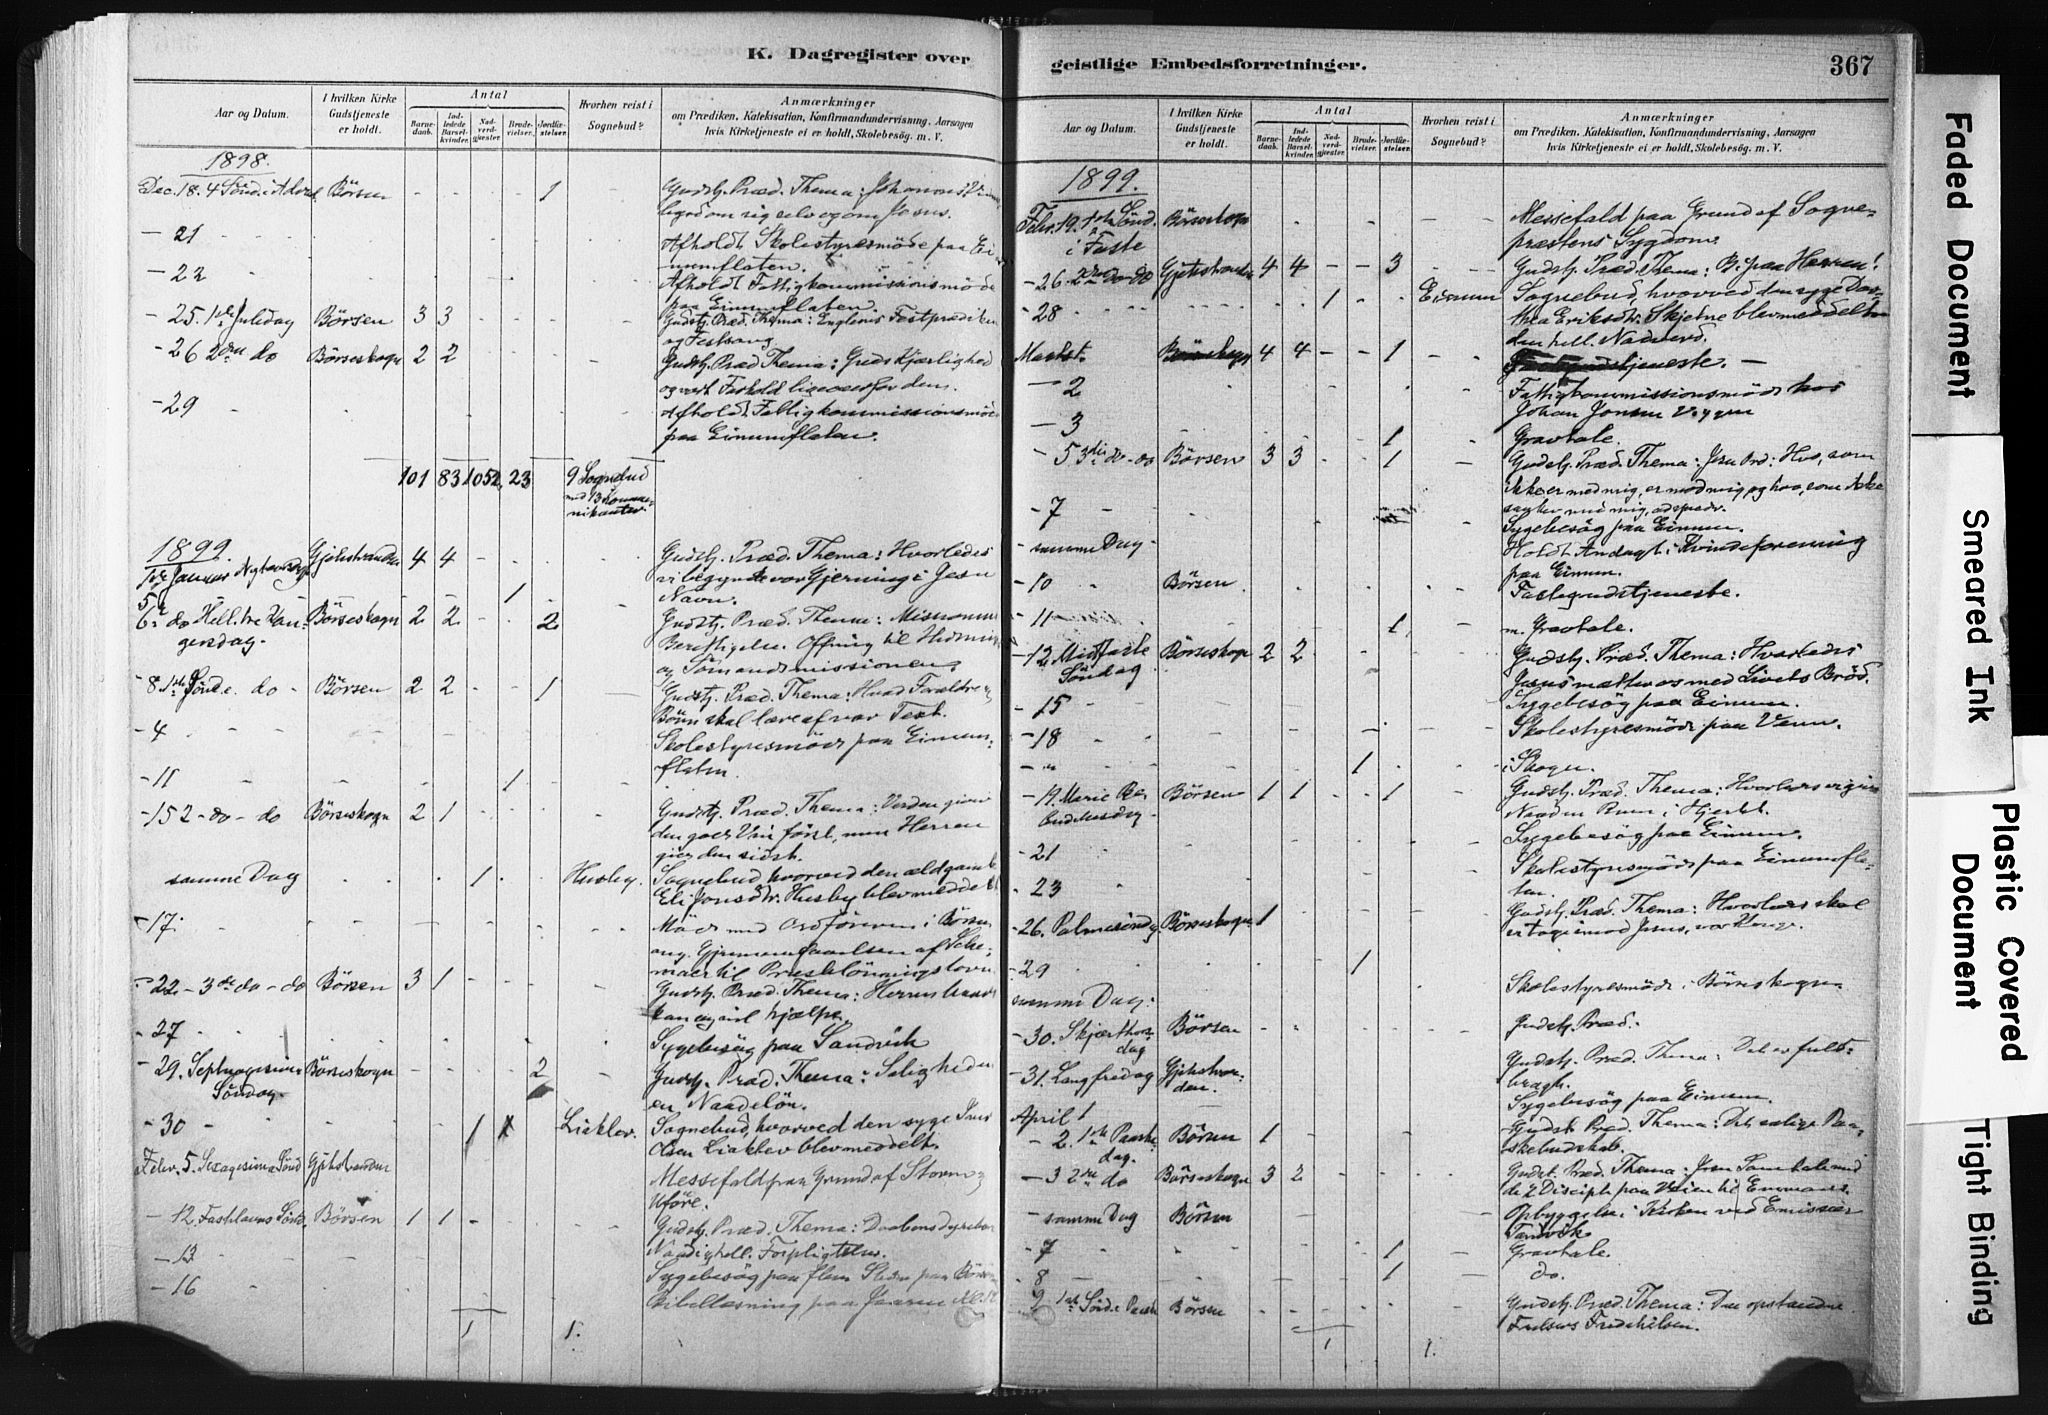 K. Dagregister over
Aar og Datum.
I hvilken Kirke
Gudstjeneste
er holdt.
Antal
Barne-
daab.
Ind-
ledede
Barsel-
kvinder.
Nad-
verd-
gjester.
Brude-
vielser.
Jordfæ-
stelser.
Hvorhen reist i
Sognebud?
Anmærkninger
om Prædiken, Katekisation, Konfirmandundervisning, Aarsagen
hvis Kirketjeneste ei er holdt, Skolebesög. m. V.
1898.
Dec. 18. 4 Sönd. i Advent Börsen - - - - 1 Gudstj. Præd. Thema: Johannes
om sig selv og om Jesus.
- 21 Afholdt Skolestyresmöde paa
- 22 Afholdt Fattigkommissionsmöde
paa Eimumflaten.
- 25. 1ste Juledag Börsen 3 3 Gudstj. Præd. Thema: Englenes Festprædiken
og Festsang
- 26 2den do Börseskogn 2 2 Gudstj. Præd Thema: Guds Kjærlighed
og vort Forhold ligeoverfor den.
- 29 Afholdt Fattigkommissionsmöde
paa Eimumflaten.
101 83 1052 23 9 Sognebud
med 13 Kommu-
nikanter
1899.
1ste Januar Nytaarsdag Gjetestranden 4 4 Gudstj. Præd. Thema: Hvorledes
vi begynde vor Gjerning i Jesu
Navn.
5 1
6. do Hell. tre Kon-
gersdag. Börseskogn 2 2 - - 2 Gudstj. Præd. Thema: Missionens
Berettigelse. Offring til
og Sömandsmissionen
- 8. 1ste Sönd e. do - Börsen 2 2 - - 1 Gudstj. Præd. Thema: Hvad Forældre og
Börn skal lære af vor Text.
- 4 Skolestyresmöde paa Eimum-
flaten.
- 11 1
- 15 2 - do - do Börseskogn 2 1 Gudstj. Præd. Thema: Verden giver
den gode Vin först, men Herren
gir den sidst.
samme Dag 1 Husby. Sognebud hvorved den ældgamle
Eli Jonsdtr. Husby blev meddelt
- 17. Möde med Ordföreren i Börsen
ang. Gjennemgaaelsen af Sche-
maer til Presklönningsloven
- 22 - 3die do - do Börsen 3 1 Gudstj. Præd. Thema: Herren baade
kan og vil hjælpe.
- 27 Sygebesög paa Sandvik
- 29. Septuagesima
Söndag Börseskogn - - - - 2 Gudstj. Præd. Thema: Saligheden
en Naadelön.
- 30 1 Liaklev. Sognebud, hvorved den syge
Olsen Liaklev blev meddelt
Febr. 5. Sexagesima Sönd Gjetestranden Messefald paa Grund af Storm og
Uföre.
- 12. Fastelavns Sönd. Börsen 1 1 Gudstj. Præd. Thema: Daabens dyrebare
Naade og hell. Forpligtelser.
- 13 Sygebesög paa flere Steder paa Börsen
- 16 Bibellæsning paa
1 1.
geistlige Embedsforretninger.
367
Aar og Datum.
I hvilken Kirke
Gudstjeneste
er holdt.
Antal
Barne-
daab.
Ind-
ledede
Barsel-
kvinder.
Nad-
verd-
gjester.
Brude-
vielser.
Jordfæ-
stelser.
Hvorhen reist i
Sognebud?
Anmærkninger
om Prædiken, Katekisation, Konfirmandundervisning, Aarsagen
hvis Kirketjeneste ei er holdt, Skolebesög. m. V.
1899.
Febr. 19. 1ste Sönd.
i Faste Börseskogn Messefald paa Grund af Sogne-
præstens Sygdom.
- 26. 2den do - do Gjetestranden 4 4 - - 3 Gudstj. Præd. Thema: B. paa Herren!
- 28 1 Eimum Sognebud, hvorved den syge Dor-
thea Eriksdtr. Skjetne blev meddelt
den hell. Nadverd.
Börseskogn 4 4 - - 1 gudstjeneste. -
- 2 Fattigkommissionsmöde hos
Johan Jonsen Viggen
- 3 1 Gravtale.
- 5 3die do - do Börsen 3 3 - - 1 Gudstj. Præd. Thema: Jesu Ord: Hvo, som
ikke er med mig, er mod mig, og hvo, som ikke
samler med mig, adspreder.
- 7 Sygebesög paa Eimum.
- samme Dag - Holdt Andagt i Kvindeforening
paa Eimum.
- 10 Börsen Fastegudstjeneste.
- 11 1 m. Gravtale.
- 12 Midfaste
Söndag Börseskogn 2 2 Gudstj. Præd. Thema: Hvorledes
Jesus mætter os med Livets Bröd.
- 15 Sygebesög paa Eimum.
- 18 Skolestyresmöde paa Venn.
- " 1 i Skogn.
- 19. Marie Be-
budelsesdag Börsen 1 1 - - 1 Gudstj. Præd. Thema: Hvorledes vi give
Naaden Rum i Hjertet.
- 21 Sygebesög paa Eimum.
- 23 Skolestyresmöde paa Eimumfla-
ten.
- 26. Palmesöndag Börseskogn 1 Gudstj. Præd. Thema: Hvorledes skal
vi tage imod Jesus, vor Konge.
- 29 1
samme Dag. Skolestyresmöde i Börseskogn
- 30. Skjærthors-
dag Börsen Gudstj. Præd.
- 31. Langfredag Gjetestran-
den. Gudstj. Præd. Thema: Det er fuld-
bragt.
April 1 Sygebesög paa Eimum.
- 2. 1ste Paaske
dag. Börsen 1 Gudstj. Præd. Thema: Det salige Paa-
skebudskab.
- 3 2den do Börseskogn 3 2 Gudst. Præd. Thema: Jesu Samtale med
de 2 Disciple paa Veien til Emmaus.
samme Dag Börsen Opbyggelse i Kirken ved Emissær
Tandvik
- 7 1 Gravtale.
- 8 1 do.
- 9 1ste Sönd. e Paaske Börsen Gudstj. Præd. Thema: Den opstandne
Frelsers Fredshilsen.
1 1.
Faded Document
Smeared Ink
Plastic Covered
Document
Tight Binding